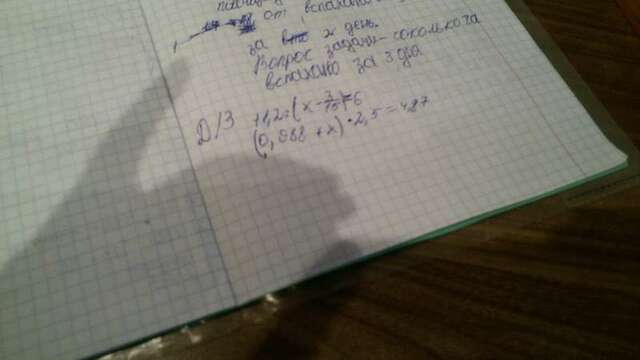 от вспахано
за 2 день.
Вопрос задачи - сколько га
вспахано за 3 дня
Д/З
(x - 3/15) = 6
(0,888 + x) * 2,5 = 4,87